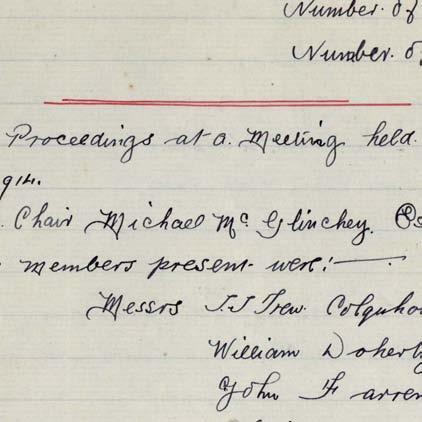 Number. of
Number. of
Proceedings at a. Meeting held.
914.
. Chair Michael Mc Glinchey. Es
members present were:—
Messrs J. J Trew. Colquho
William Doherty
John Farren